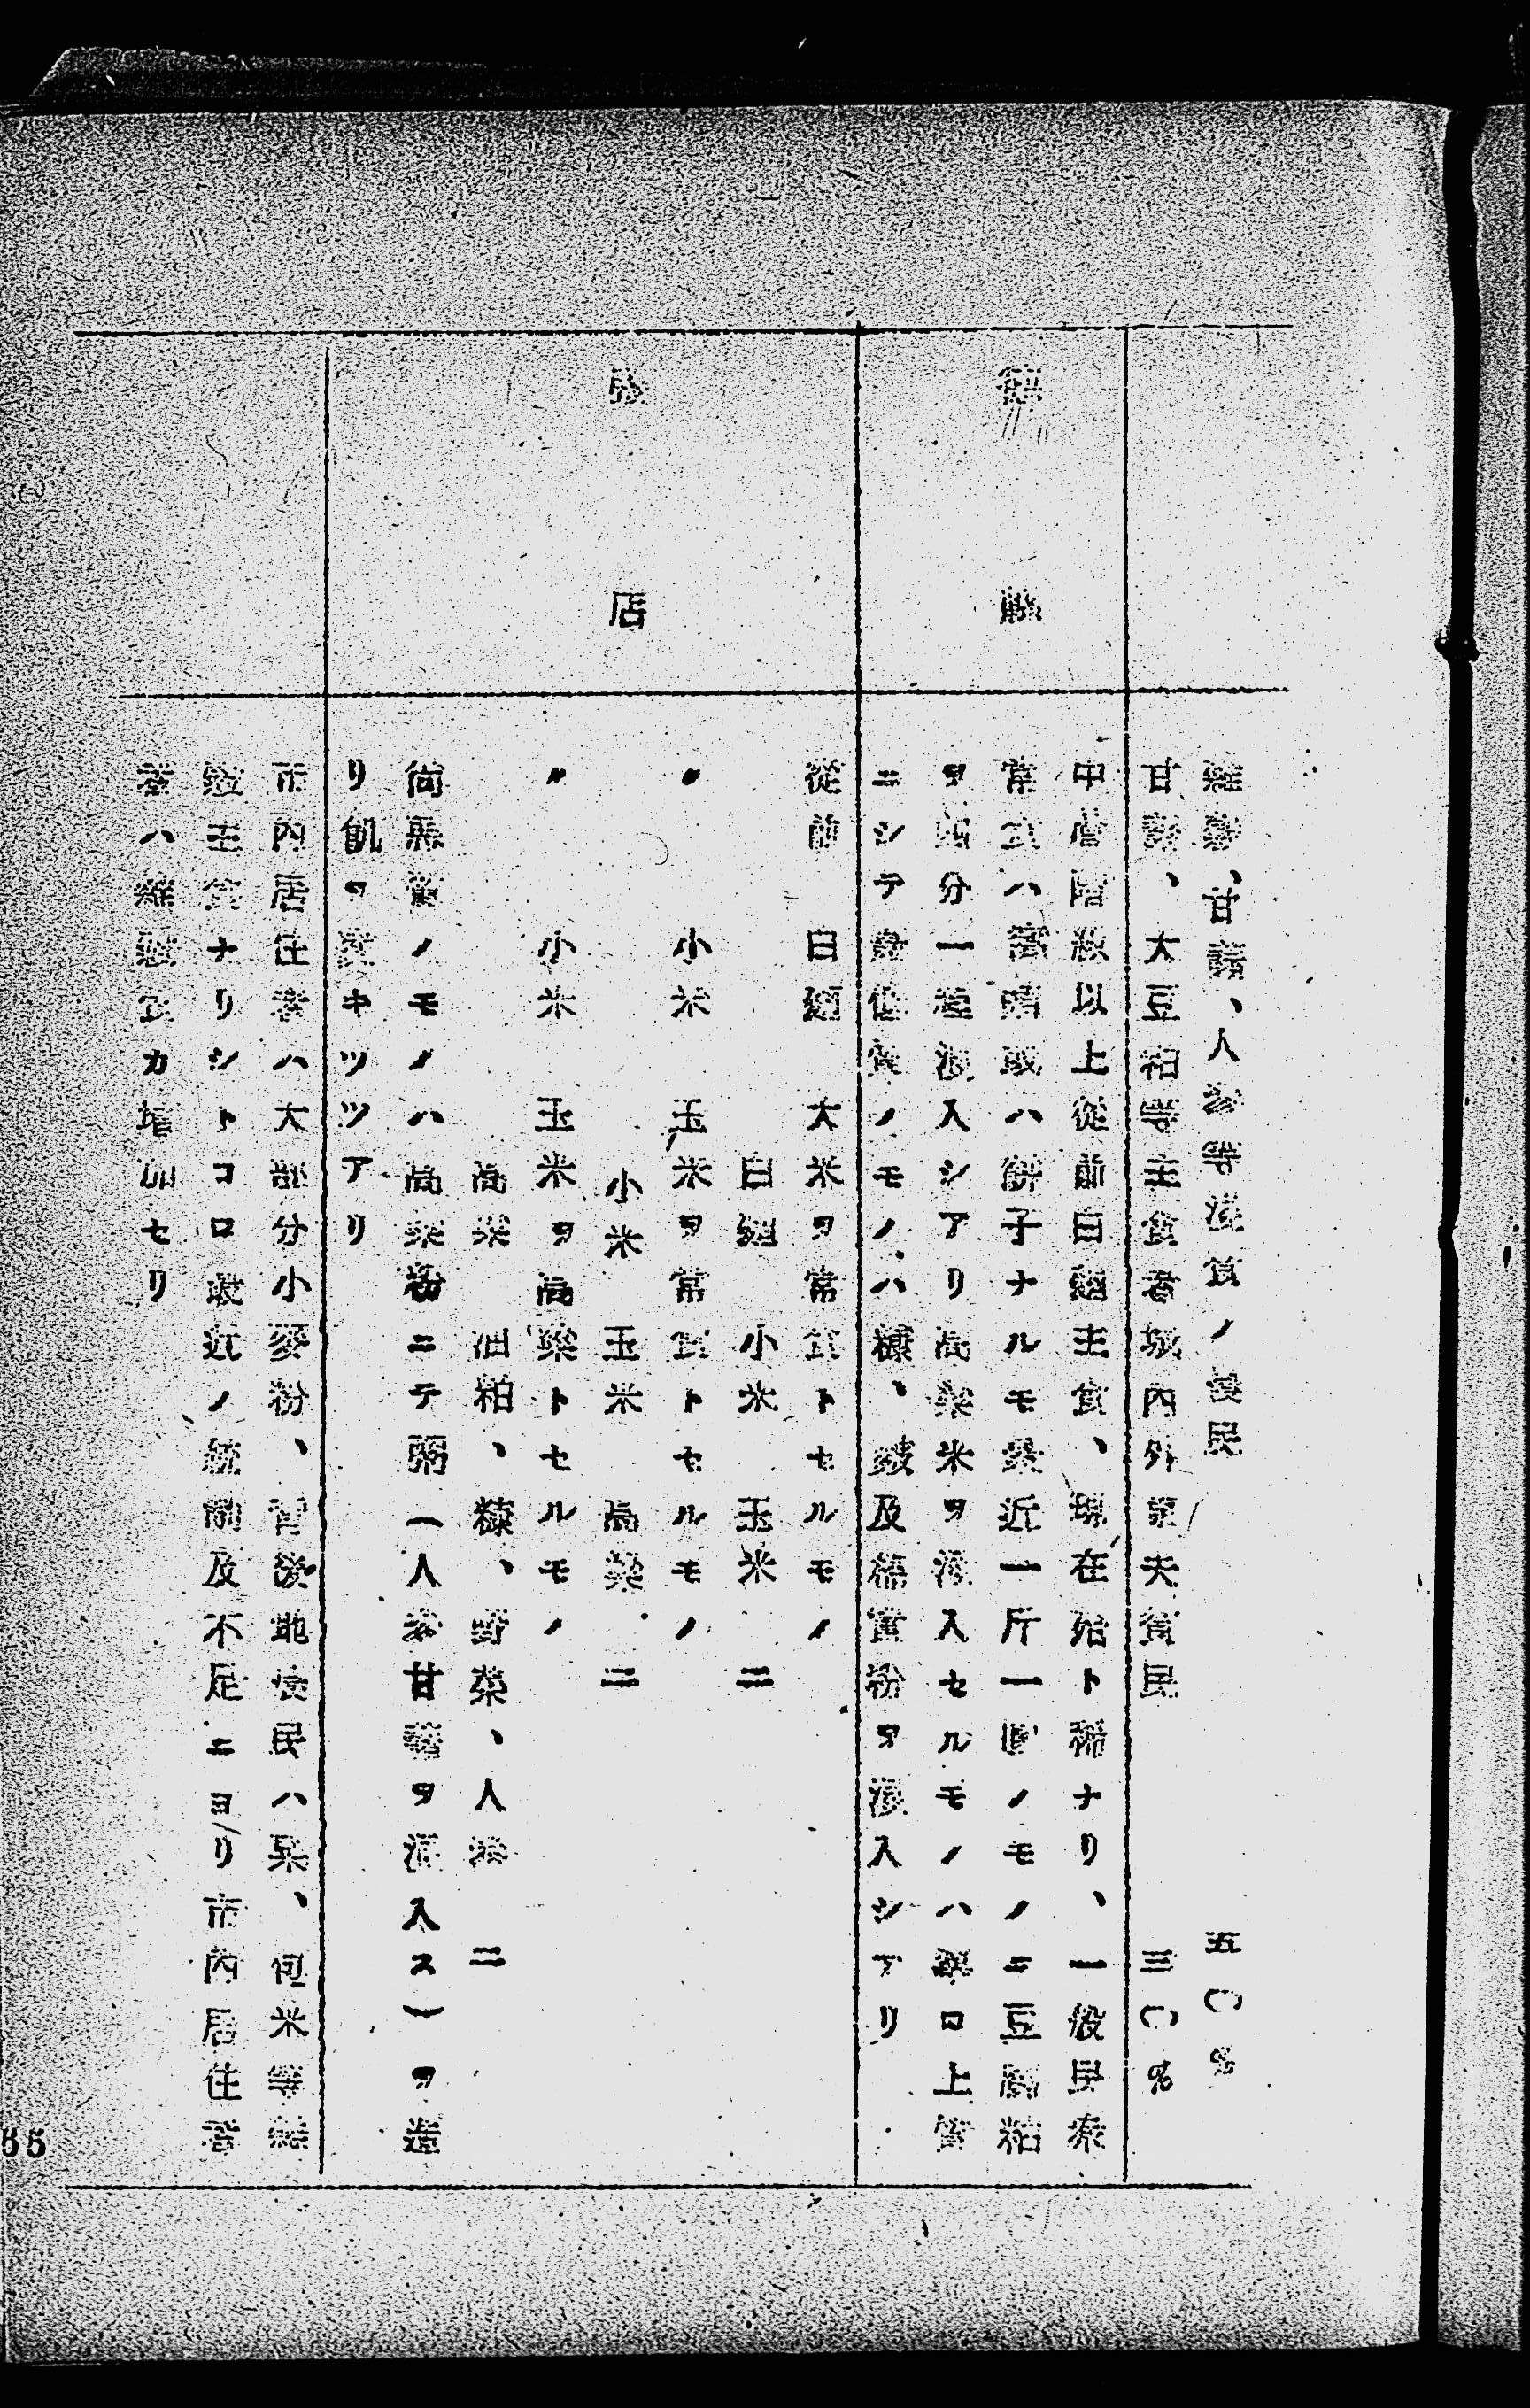 雜穀、甘藷、人参等混食ノ農民 五〇%
甘藷、大豆粕等主食者城內外車夫貧民 三〇%
中產階級以上從前白麵主食、現在殆ト稀ナリ、一般民衆
常食ハ窩 或ハ餅子ナルモ最近一斤一圓ノモノニ豆腐粕
ヲ四分一混入シアリ高粱米ヲ混入セルモノハ 口上質
ニシテ 價 ノモノハ糠、 及 粉ヲ混入シアリ
店
從前 白麵 大米ヲ常食トセルモノ
白麵 小米 玉米 ニ
〃 小米 玉米ヲ常食トセルモノ
小米 玉米 高粱 ニ
〃 小米 玉米ヲ高粱トセルモノ
高粱 油粕、糠、野菜、人参 ニ
尙 ノモノハ高粱粉ニテ粥(人参甘藷ヲ混入ス)ヲ造
リ飢ヲ凌キツツアリ
市內居住者ハ大部分小麥粉、 後地農民ハ粟、包米等雜
穀主食ナリシトコロ最近ノ統制及不足ニヨリ市內居住者
ハ雜穀食カ增加セリ
55